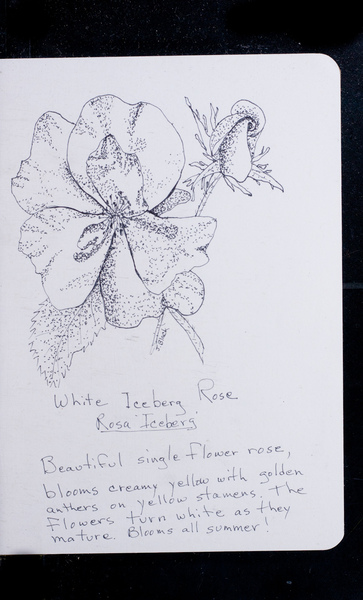 White Iceberg Rose
Rosa 'Iceberg'
Beautiful single flower rose,
blooms creamy yellow with golden
anthers on yellow stamens. The
flowers turn white as they
mature. Blooms all summer!